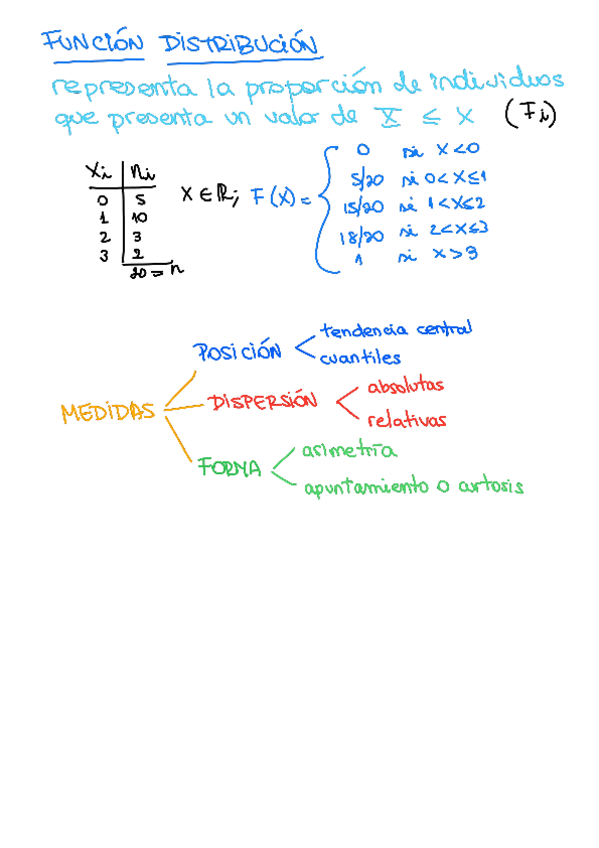 FUNCIÓN DISTRIBUCIÓN
representa la proporción de individuos
que presenta un valor de X ≤ x (Fi)
xi ni
0 5
1 10
2 3
3 2
20 = n
x ∈ ℝ; F(x) =
0 si x<0
5/20 si 0<x≤1
15/20 si 1<x≤2
18/20 si 2<x≤3
1 si x>3
MEDIDAS
POSICIÓN
tendencia central
cuantiles
DISPERSIÓN
absolutas
relativas
FORMA
asimetría
apuntamiento o curtosis